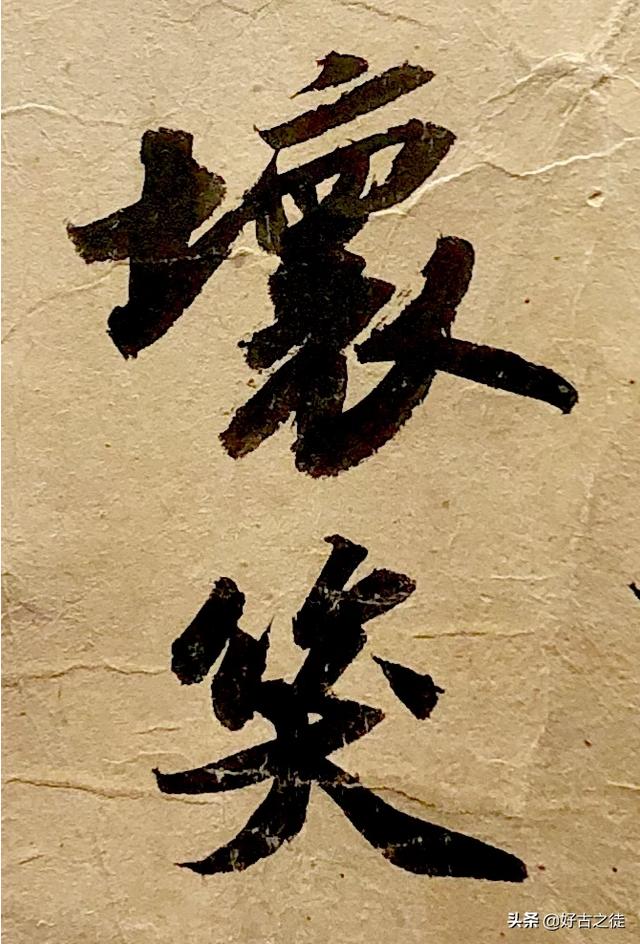 壞
笑
头条 @好古之徒